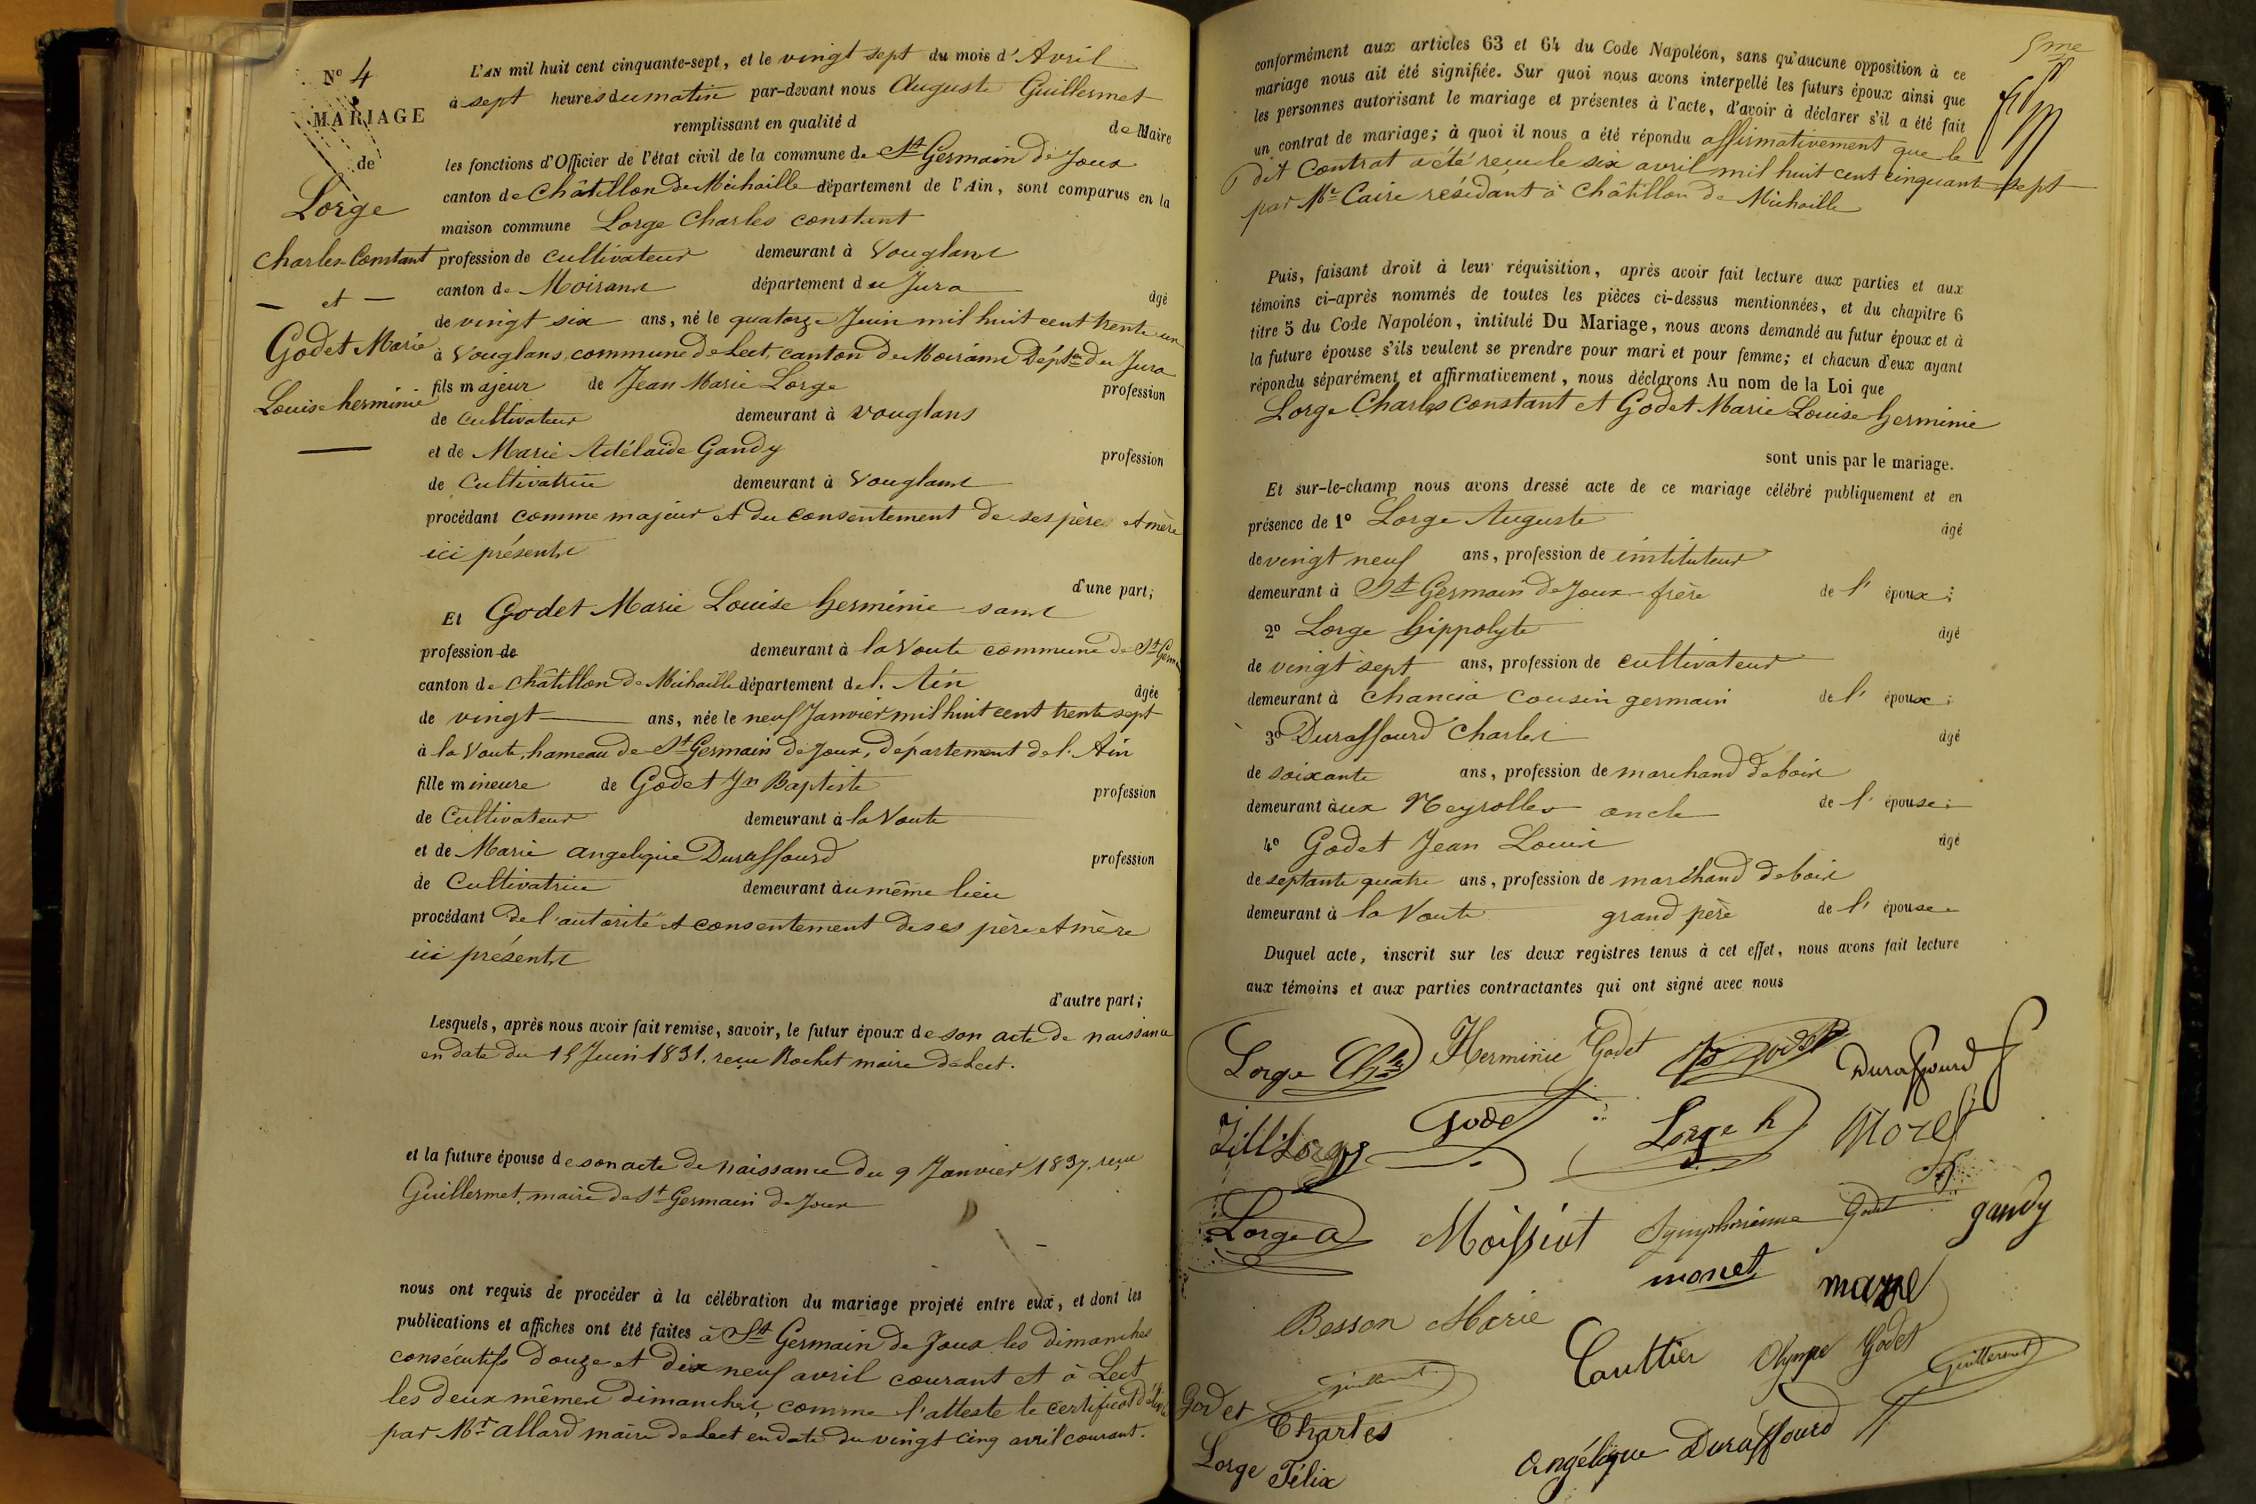 N° 4
MARIAGE
de
Lorge
Charles-Constant
et
Godet Marie
Louise herminie
L'AN mil huit cent cinquante-sept, et le vingt sept du mois d'Avril
à sept heures du matin par-devant nous Auguste Guillermet
remplissant en qualité d de Maire
les fonctions d'Officier de l'état civil de la commune de St Germain de Joux
canton de Châtillon de Michaille département de l'Ain, sont comparus en la
maison commune Lorge Charles constant
profession de cultivateur demeurant à Vouglans
canton de Moirans département du Jura âgé
de vingt six ans, né le quatorze Juin mil huit cent trente un
à Vouglans, commune de Lect, canton de Moirans Dépt du Jura
fils majeur de Jean Marie Lorge profession
de cultivateur demeurant à vouglans
et de Marie Adélaïde Gandy profession
de Cultivatrice demeurant à Vouglans
procédant comme majeur et du consentement de ses père et mère
ici présents
d'une part;
Et Godet Marie Louise herminie sans
profession de demeurant à la Voute commune de St Germ
canton de châtillon de Michaille département de l'Ain âgée
de vingt ans, née le neuf Janvier mil huit cent trente sept
à la Voute, hameau de St Germain de Joux, département de l'Ain
fille mineure de Godet Jn Baptiste profession
de Cultivateur demeurant à la Voute
et de Marie angelique Duraffourd profession
de Cultivatrice demeurant au même lieu
procédant de l'autorité et consentement de ses père et mère
ici présents
d'autre part;
Lesquels, après nous avoir fait remise, savoir, le futur époux de son acte de naissance
en date du 15 Juin 1831, reçu Rochet maire de Lect.
et la future épouse de son acte de naissance du 9 Janvier 1837, reçu
Guillermet, maire de St Germain de Joux
nous ont requis de procéder à la célébration du mariage projeté entre eux, et dont les
publications et affiches ont été faites à St Germain de Joux les dimanches
consécutifs douze et dix neuf avril courant et à Lect
les deux mêmes dimanches, comme l'atteste le certificat délivré
par Mr allard maire de Lect en date du vingt cinq avril courant.
5me
conformément aux articles 63 et 64 du Code Napoléon, sans qu'aucune opposition à ce
mariage nous ait été signifiée. Sur quoi nous avons interpellé les futurs époux ainsi que
les personnes autorisant le mariage et présentes à l'acte, d'avoir à déclarer s'il a été fait
un contrat de mariage; à quoi il nous a été répondu affirmativement que le
dit Contrat a été reçu le six avril mil huit cent cinquante sept
par Me Caire résidant à Châtillon de Michaille
Puis, faisant droit à leur réquisition, après avoir fait lecture aux parties et aux
témoins ci-après nommés de toutes les pièces ci-dessus mentionnées, et du chapitre 6
titre 5 du Code Napoléon, intitulé Du Mariage, nous avons demandé au futur époux et à
la future épouse s'ils veulent se prendre pour mari et pour femme; et chacun d'eux ayant
répondu séparément et affirmativement, nous déclarons Au nom de la Loi que
Lorge Charles Constant et Godet Marie Louise herminie
sont unis par le mariage.
Et sur-le-champ nous avons dressé acte de ce mariage célébré publiquement et en
présence de 1° Lorge Auguste âgé
de vingt neuf ans, profession de instituteur
demeurant à St Germain de Joux frère de l'époux;
2° Lorge hippolyte âgé
de vingt sept ans, profession de cultivateur
demeurant à Chancia cousin germain de l'époux;
3° Duraffourd Charles âgé
de soixante ans, profession de marchand de bois
demeurant aux Neyrolles oncle de l'épouse;
4° Godet Jean Louis âgé
de septante quatre ans, profession de marchand de bois
demeurant à la Voute grand père de l'épouse
Duquel acte, inscrit sur les deux registres tenus à cet effet, nous avons fait lecture
aux témoins et aux parties contractantes qui ont signé avec nous
Lorge Herminie Godet Godet Duraffourd
Lorge Godet Lorge h Morel
Lorge a Moissiat Symphorienne Godet gandy
monet
Besson Marie
Gauttier Olympe Godet
Guillermet Guillermet
Godet Charles
Angélique Duraffourd
Lorge Félix